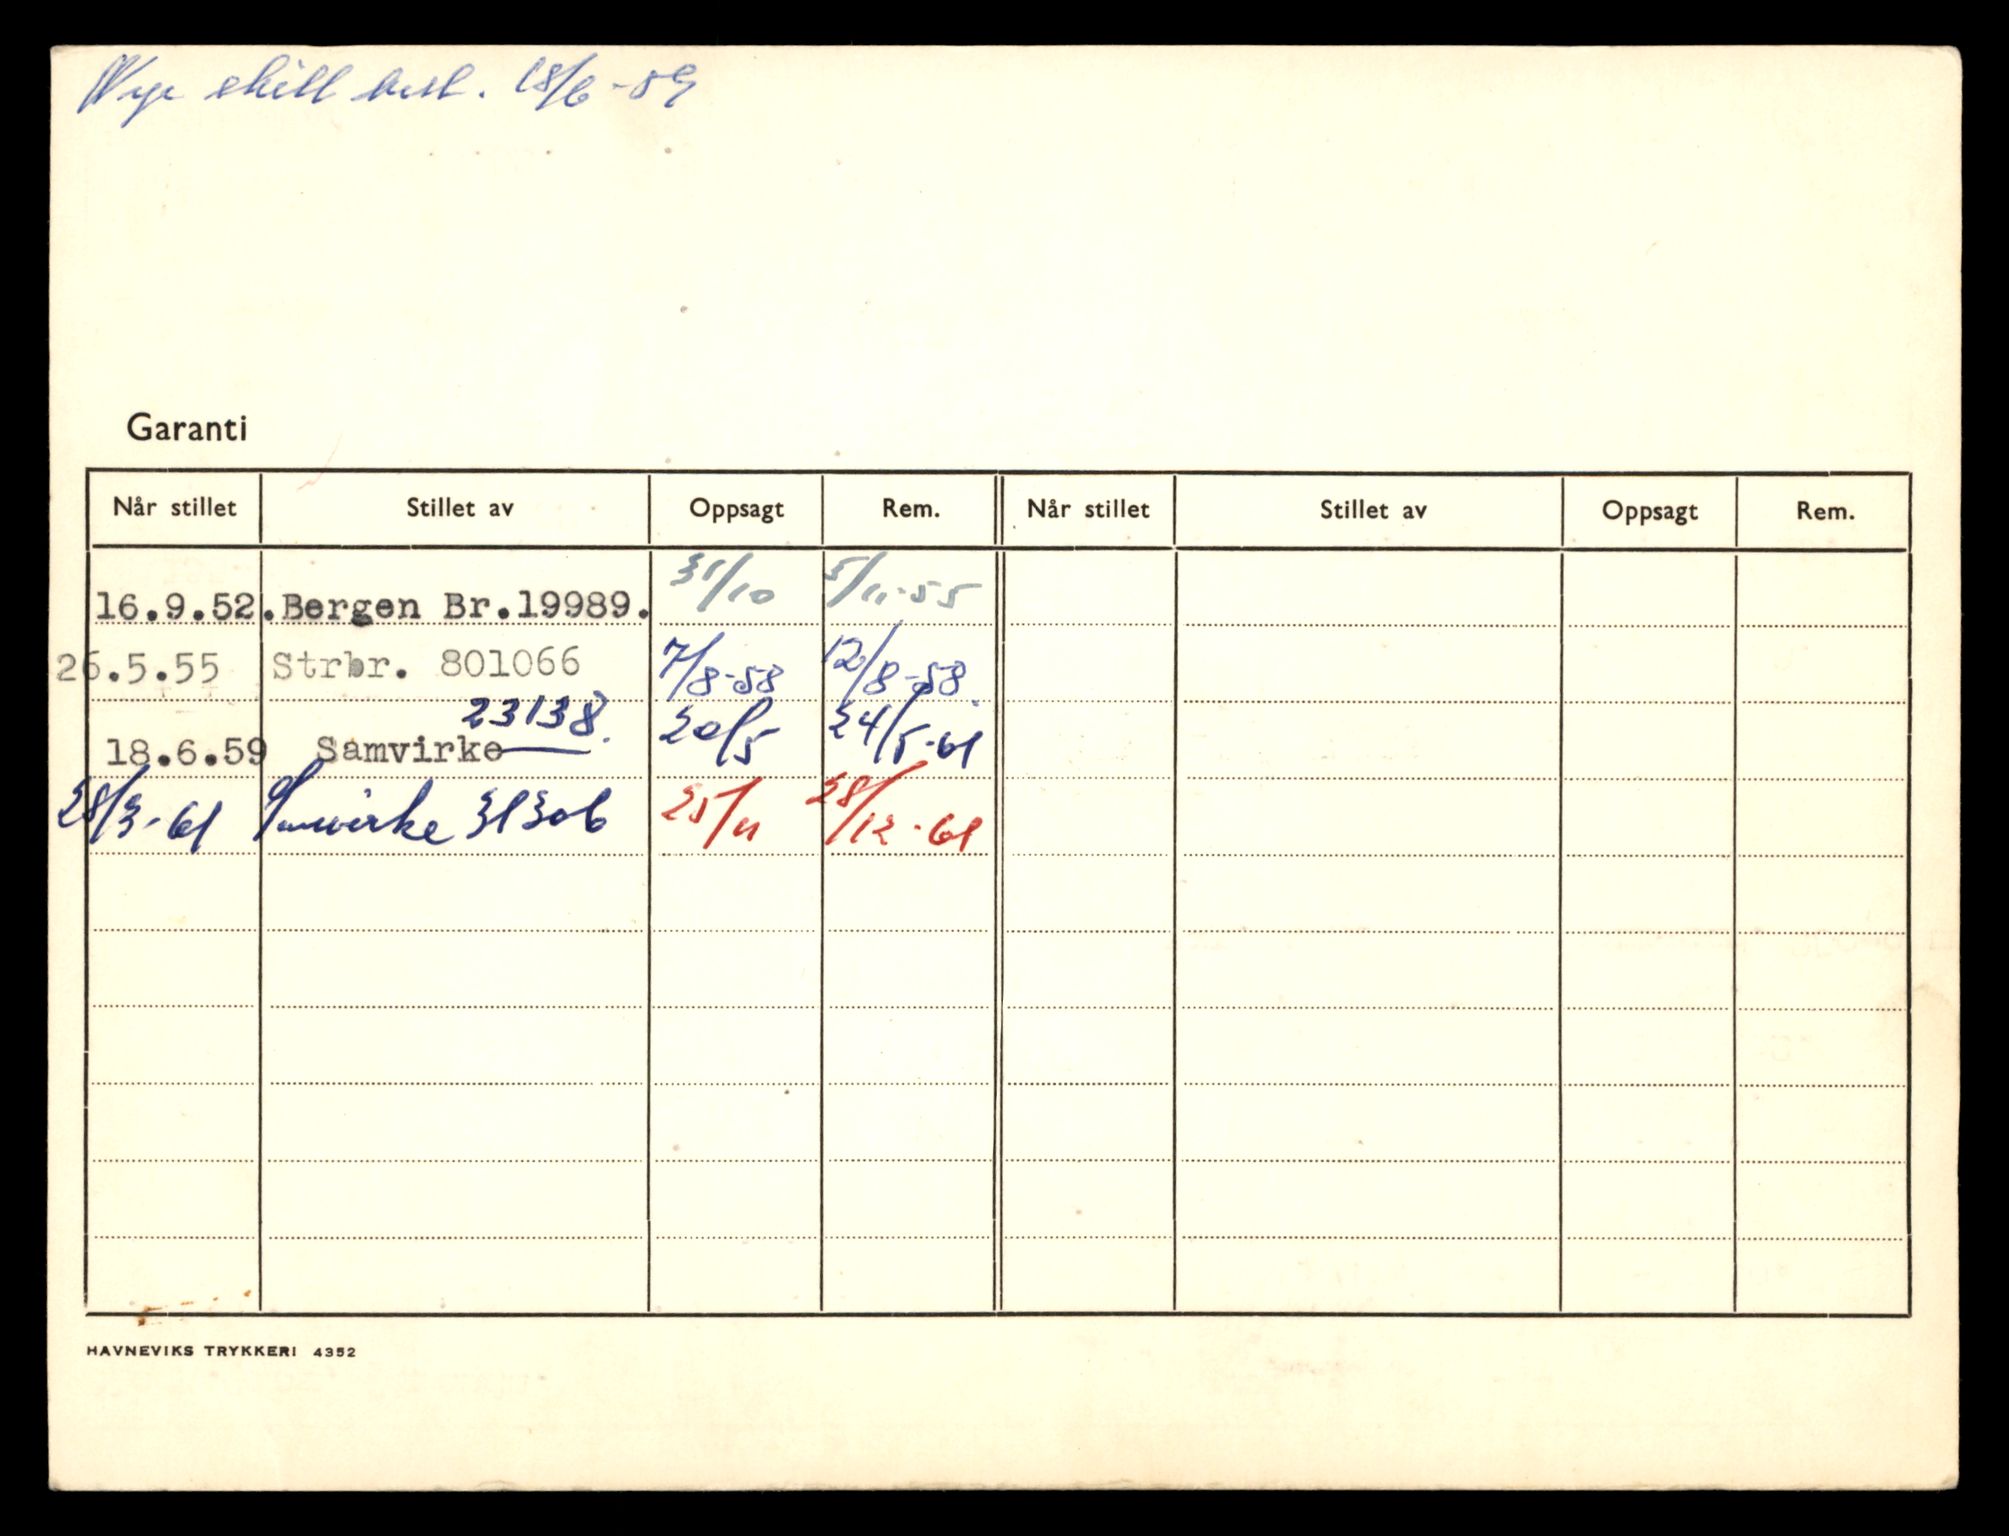 Nye skilt best. 18/6-59
Garanti
Når stillet Stillet av Oppsagt Rem. Når stillet Stillet av Oppsagt Rem.
16.9.52. Bergen Br.19989. 31/10 5/11-55
26.5.55 Strbr. 801066 7/8-58 12/8-58.
23138.
18.6.59 Samvirke 20/5 24/5-61
28/3-61 Samvirke 31306 25/11 28/12-61
HAVNEVIKS TRYKKERI 4352